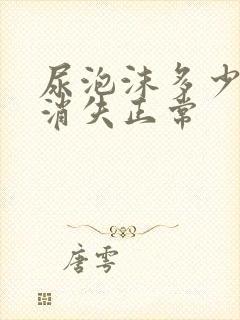 尿泡沫多少
消失正常
唐雩